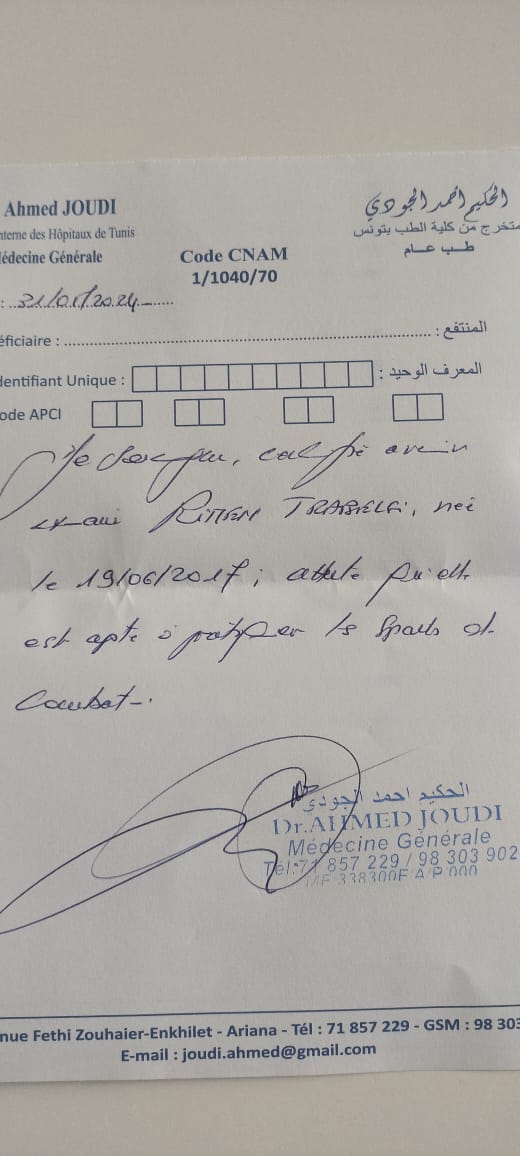 Ahmed JOUDI
الحكيم أحمد الجودي
nterne des Hôpitaux de Tunis
متخرج من كلية الطب بتونس
Médecine Générale
طب عام
Code CNAM
1/1040/70
: 31/01/2024
éficiaire : المنتفع :
dentifiant Unique : المعرف الوحيد :
ode APCI
Je soussigné, certifie avoir
examiné TRABELSI, née
le 19/06/2017; atteste qu'elle
est apte à pratiquer les sports de
Combat.
الحكيم احمد الجودي
Dr.AHMED JOUDI
Médecine Générale
Tél:71 857 229 / 98 303 902
MF 338300F/A/P 000
nue Fethi Zouhaier-Enkhilet - Ariana - Tél : 71 857 229 - GSM : 98 303
E-mail : joudi.ahmed@gmail.com